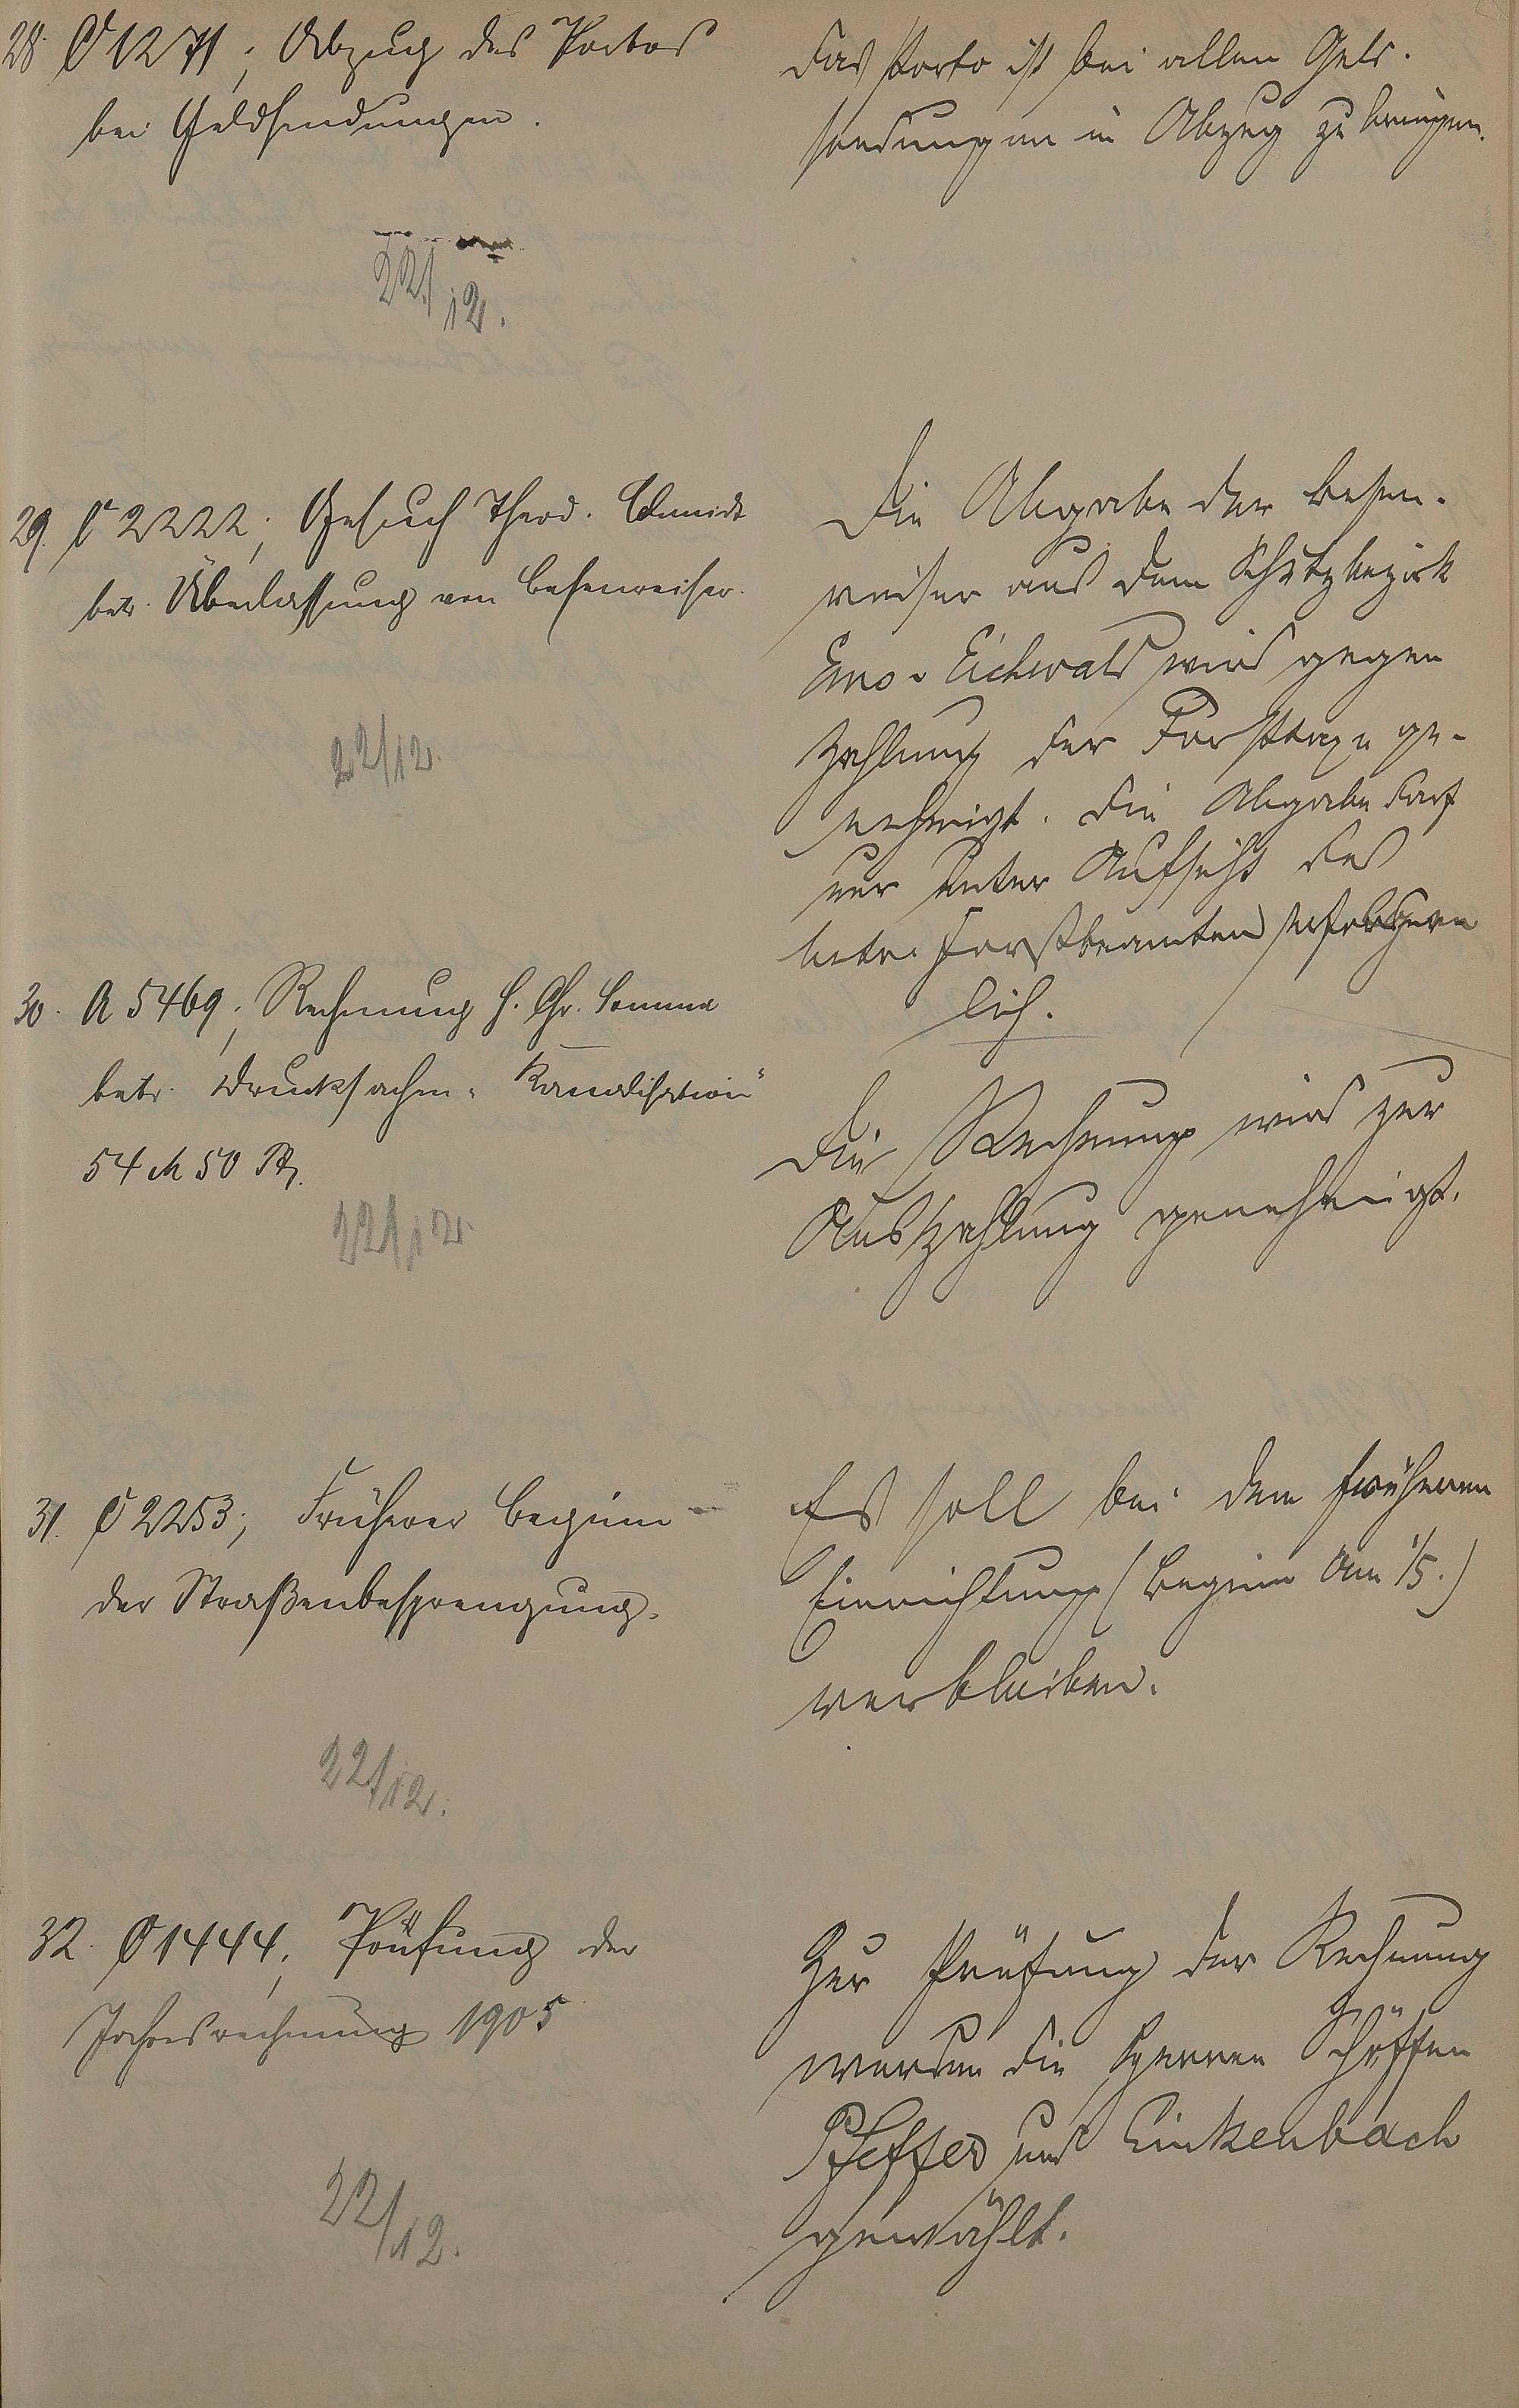 28. C 1271; Abzug des Portos
bei Geldsendungen.
Das Porto ist bei allen Geld-
sendungen in Abzug zu bringen.
22/12.
29. C 2222; Gesuch Theod. Schmidt
betr. Überlassung von Besenreiser.
Die Abgabe der Besen-
reiser aus dem Schutzbezirk
Ems-Eichwald wird gegen
Zahlung der Forsttaxe ge-
nehmigt. Die Abgabe darf
nur unter Aufsicht des
betr. Forstbeamten
lich.
22/12.
30. A 5469; Rechnung H. Chr. Sommer
betr. Drucksachen "Kanalisation"
54 M 50 Pf.
Die Rechnung wird zur
Auszahlung genehmigt.
22/12
31. C 2253; Früherer Beginn
der Straßenbesprengung.
Es soll bei dem früheren
Einrichtung (Beginn am 1/5.)
verbleiben.
22/12.
32. C 1444; Prüfung der
Jahresrechnung 1905
Zur Prüfung der Rechnung
werden die Herren Schöffen
Pfeffer und Linkenbach
gewählt.
22/12.